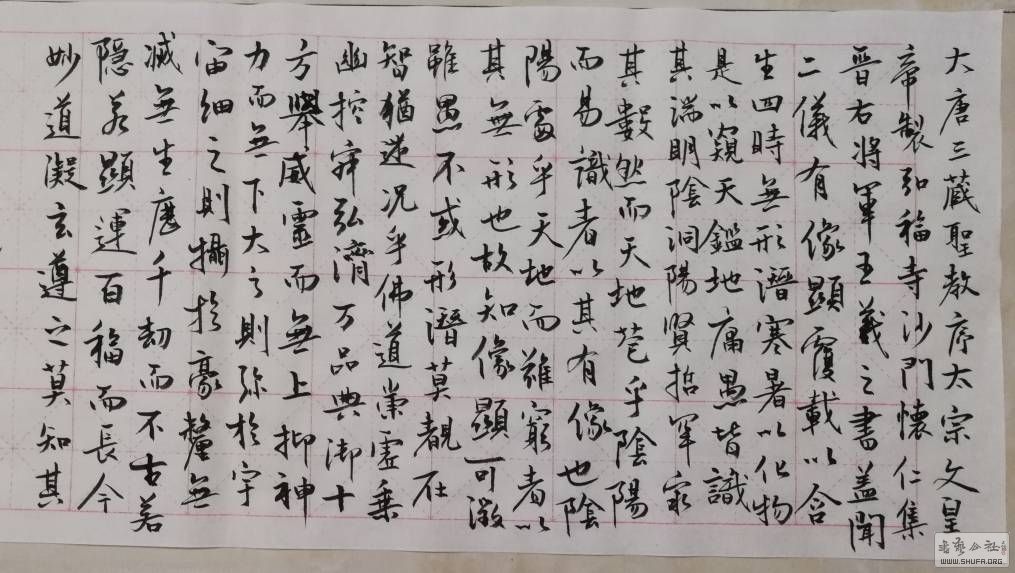 大唐三蔵聖教序太宗文皇
帝製弘福寺沙門懷仁集
晉右將軍王羲之書盖聞
二儀有像顯覆載以含
生四時無形潛寒暑以化物
是以窺天鑑地庸愚皆識
其端明陰洞陽賢哲罕窮
其數然而天地苞乎陰陽
而易識者以其有像也陰
陽處乎天地而難窮者以
其無形也故知像顯可徵
雖愚不惑形潛莫覩在
智猶迷況乎佛道崇虛乗
幽控寂弘濟万品典御十
方舉威靈而無上抑神
力而無下大之則弥於宇
宙細之則攝於豪釐無
滅無生歷千劫而不古若
隱若顯運百福而長今
妙道凝玄遵之莫知其
书艺公社
WWW.SHUFA.ORG